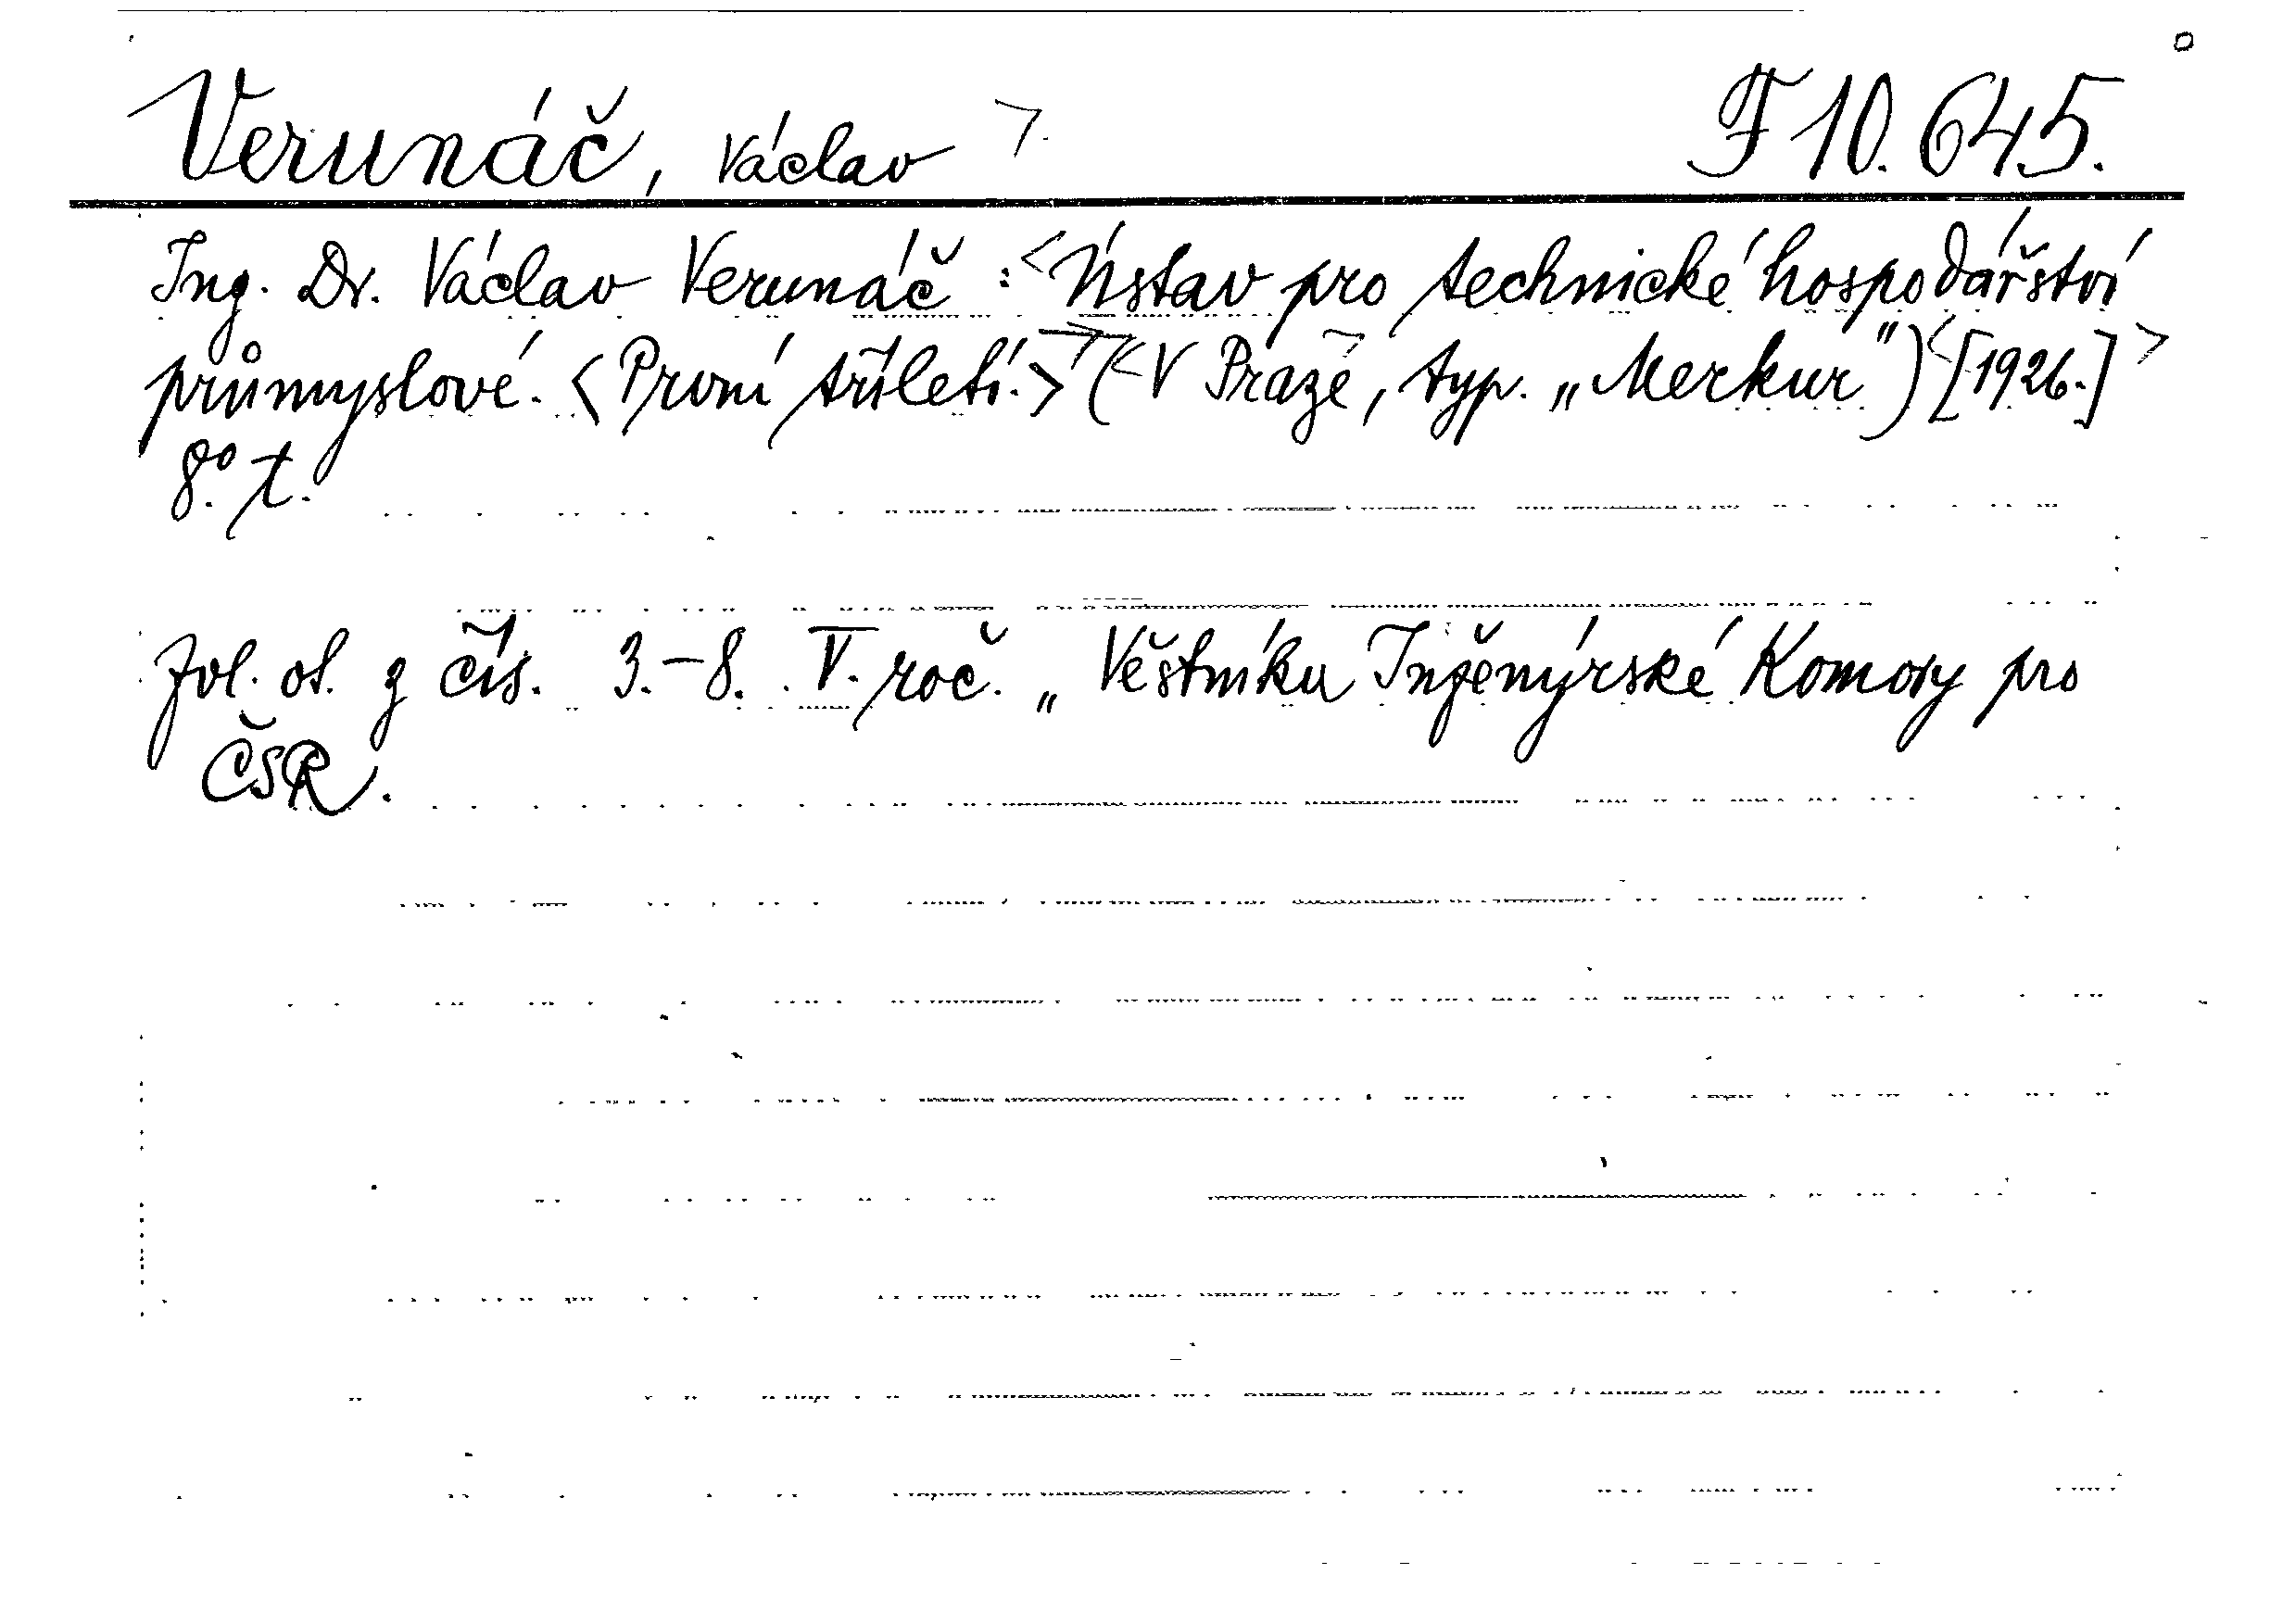 Verunáč, Václav F 10.645.
Ing. Dr. Václav Verunáč : Ústav pro technické hospodářství
průmyslové. <První tříletí.> (V Praze, typ. „Merkur") [1926.]
8.° t.
Zvl. ot. z čís. 3.-8. V. roč. „Věstníku Inženýrské Komory pro
ČSR.